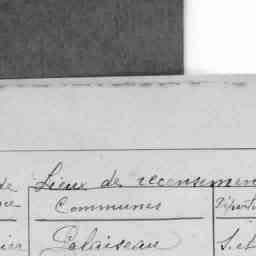 de Lieux de recensemen
ce Communes Départ
ier Palaiseau S. et